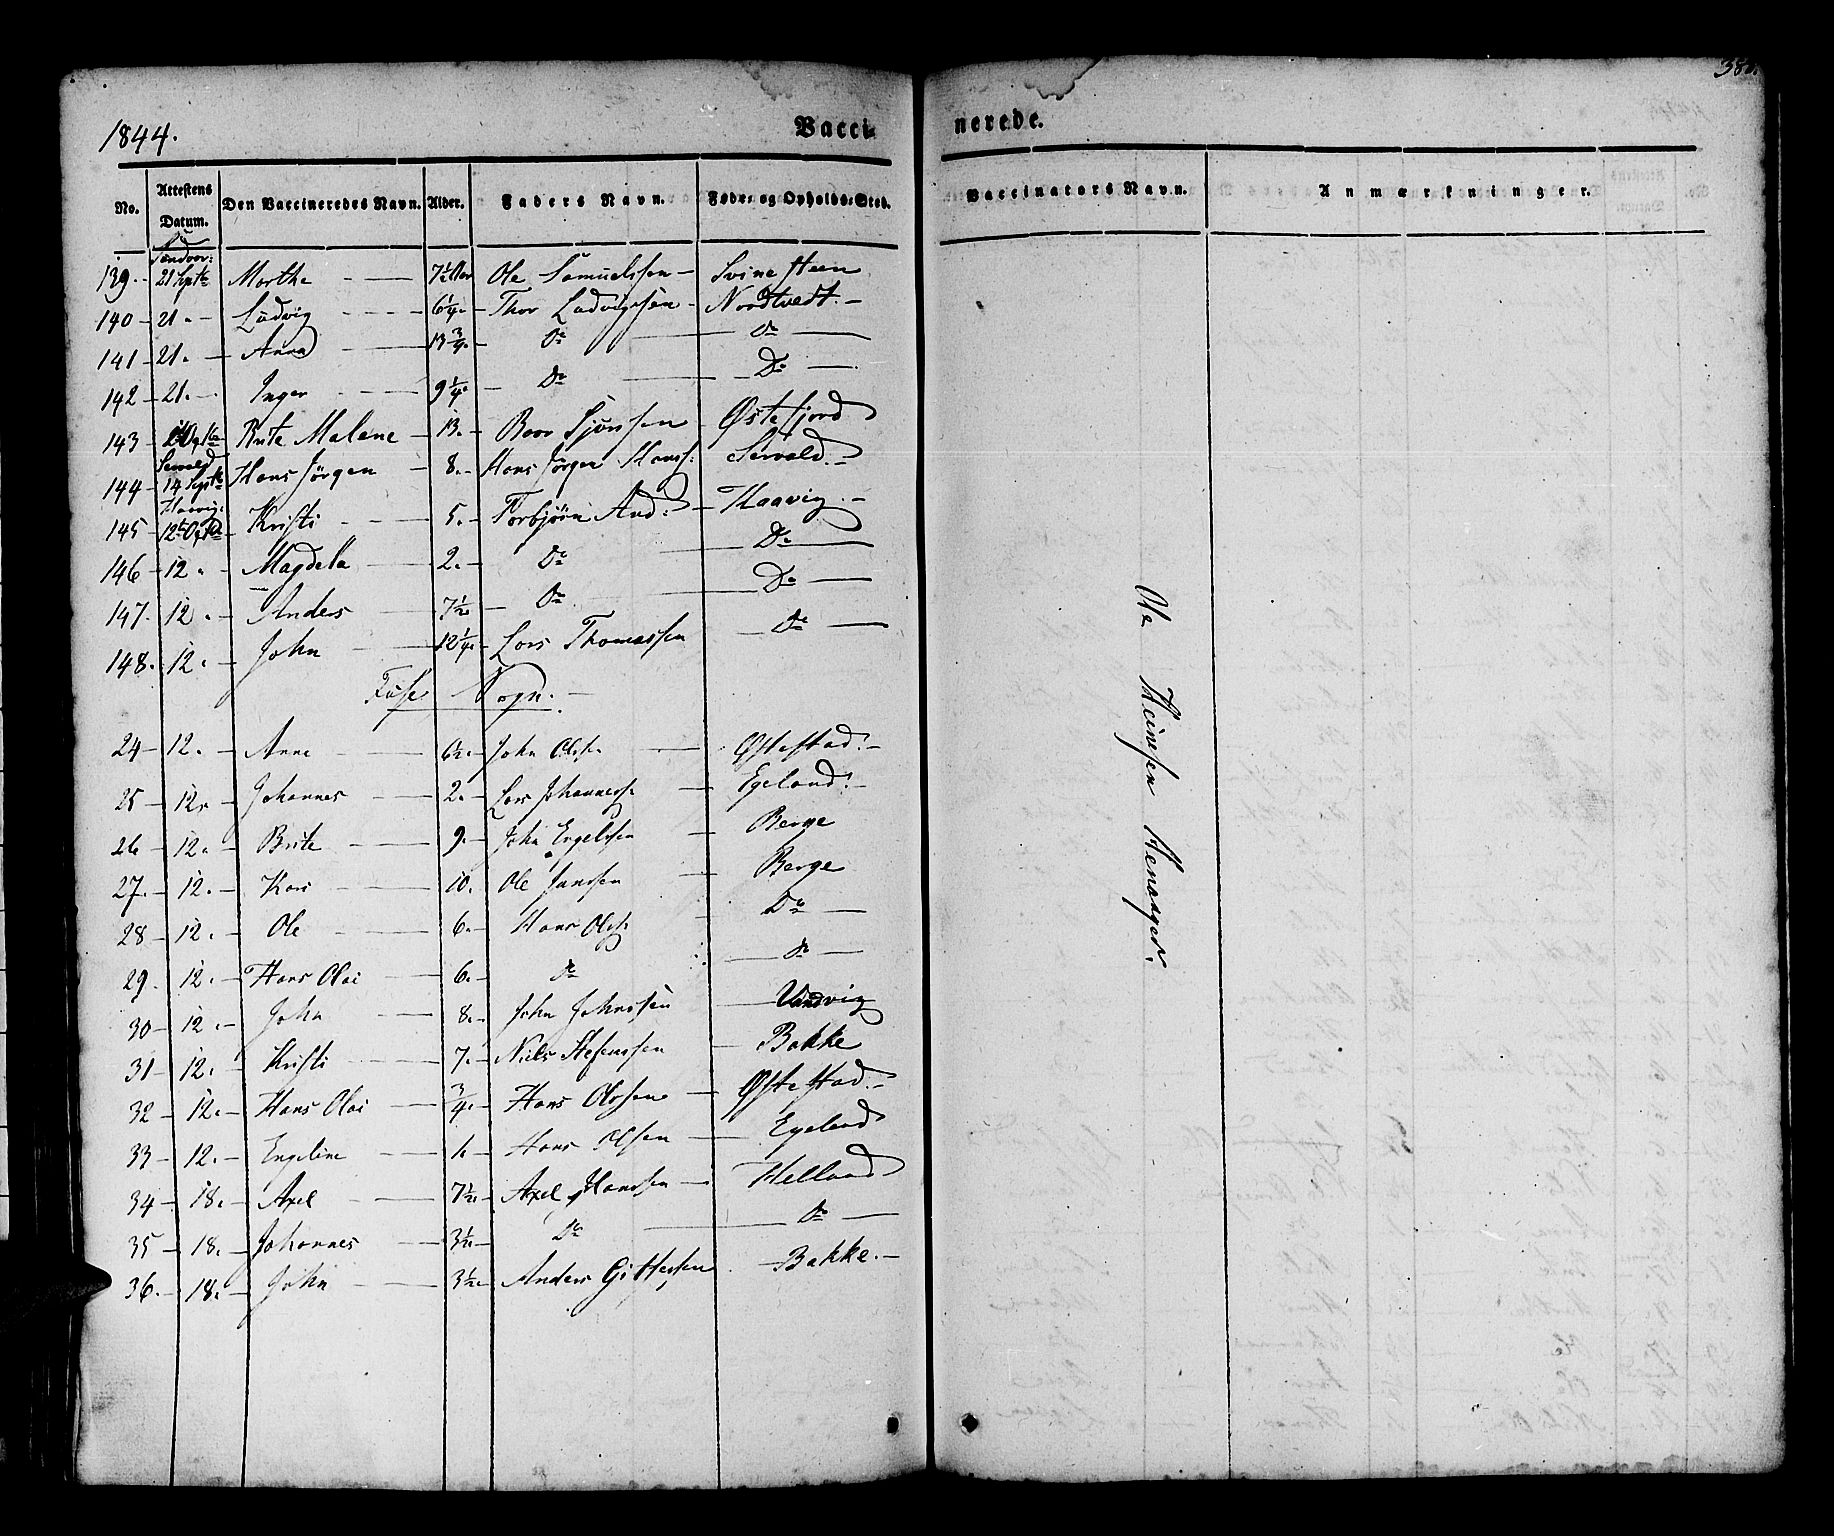 1844. Vacci- nerede. 38
No. Attestens Datum. Den Vaccineredes Navn. Alder. Faders Navn. Føde- og Opholds-Sted. Vaccinators Navn. Anmærkninger.
139. 21 Septr Marthe 7½ Ole Samuelssen
140 21. Ludvig 6¼. Thor Ludvigssen Nordtvedt.
141 21. Anna 13¾. Do Do
142 21. Inger 9¼. Do Do
143 Brite Malene 13. Østefjord
144 14 Septr Hans Jørgen 8. Hans Jørgen Hanss: Servold.
145 12 Kristi 5. Torbjørn And: Haavig.
146 12. Magdela 2. Do Do
147. 12. Anders 7½ Do Do
148. 12. John 12¼. Lars Thomassen Do
Fuse Sogn.
24 12. Anne 6½. John Olss. Østestad.
25 12. Johannes 2. Lars Johanness. Egeland.
26 12. Brite 9. John Engelssen Berge
27. 12. Kari 10. Ole Janssen Berge
28 12. Ole 6. Hans Olss. Do
29. 12. Hans Olai 6. Do Do
30 12. John 8. John Johnssen
31 12. Kristi 7. Niels Stefenssen Bakke
32 12. Hans Olai ¾. Hans Olssen Østestad.
33 12. Engeline 1. Hans Olsen Egeland
34 18. Axel 7½. Axel Hanssen Helland
35 18. Johannes 3½ Do Do
36. 18. John 3½. Anders Gittessen Bakke.
Ole Heinesen Henanger.